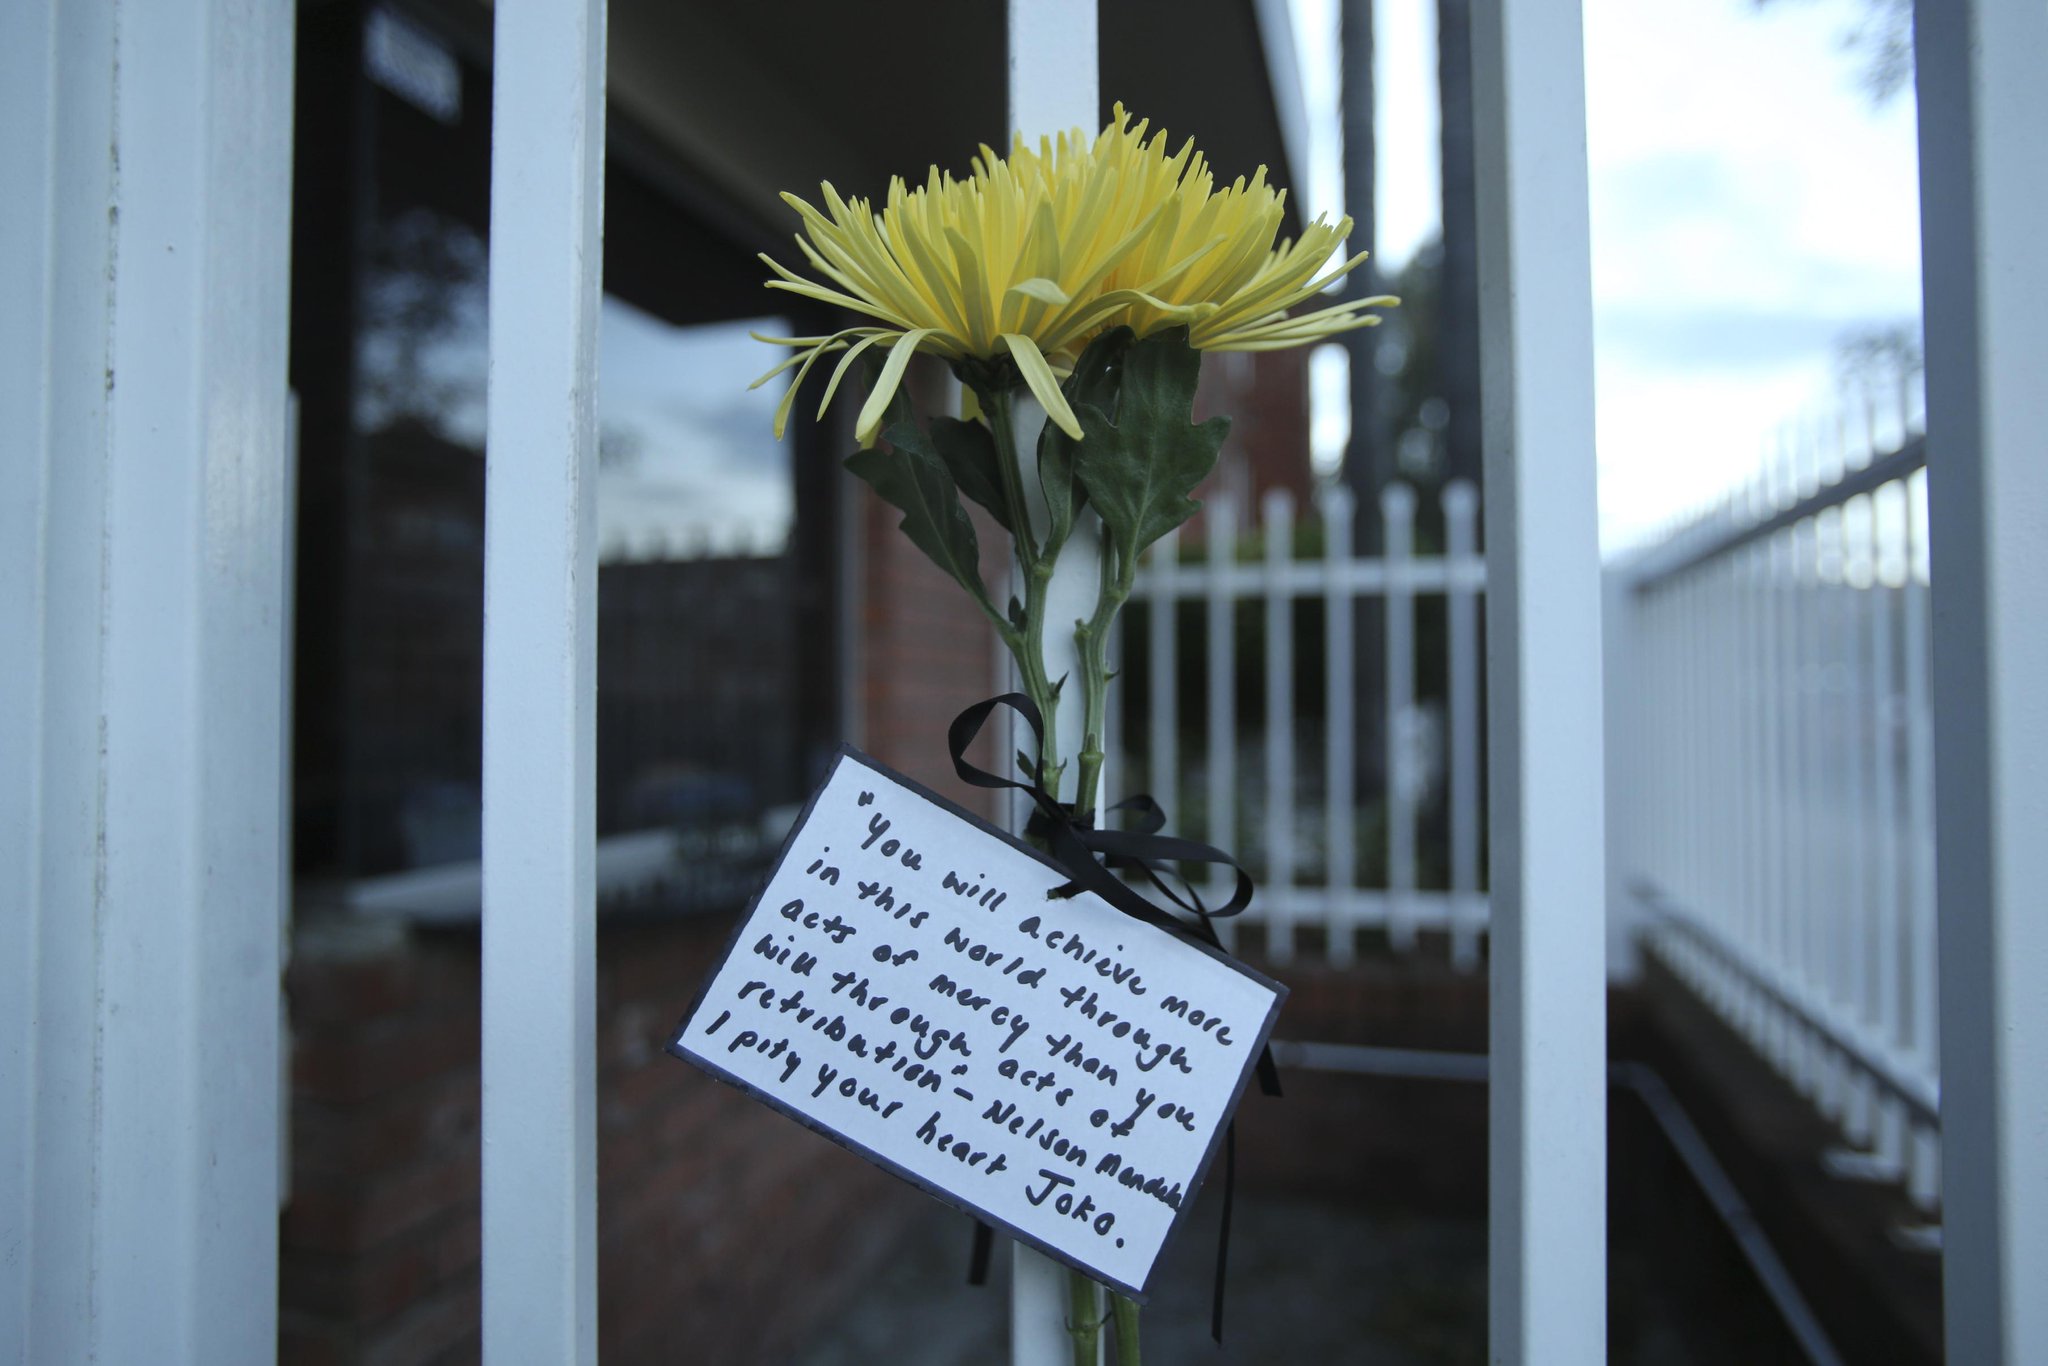 "You will achieve more
in this world through
acts of mercy than you
will through acts of
retribution" - Nelson Mandela
I pity your heart Joko.